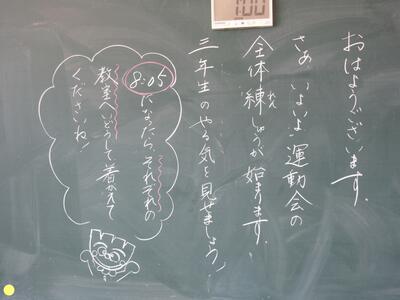 おはようございます。
さぁ いよいよ 運動会の
全体練しゅうが始まります。
れん
三年生のやる気を見せましょう!
8:05
になったら、それぞれの
教室へいどうして着がえて
くださいね!